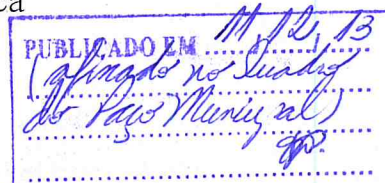 ca
PUBLICADO EM 11, 12, 13
(afixado no quadro
do Paço Municipal)